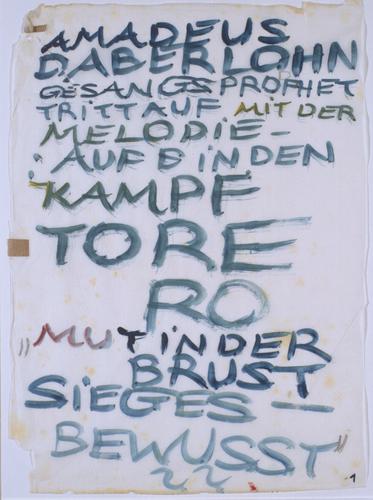 AMADEUS
DABERLOHN
GESANGSPROPHET
TRITT AUF MIT DER
MELODIE-
"AUF B INDEN
KAMPF
TORE
RO
„MUT IN DER
BRUST
SIEGES —
BEWUSST"
1